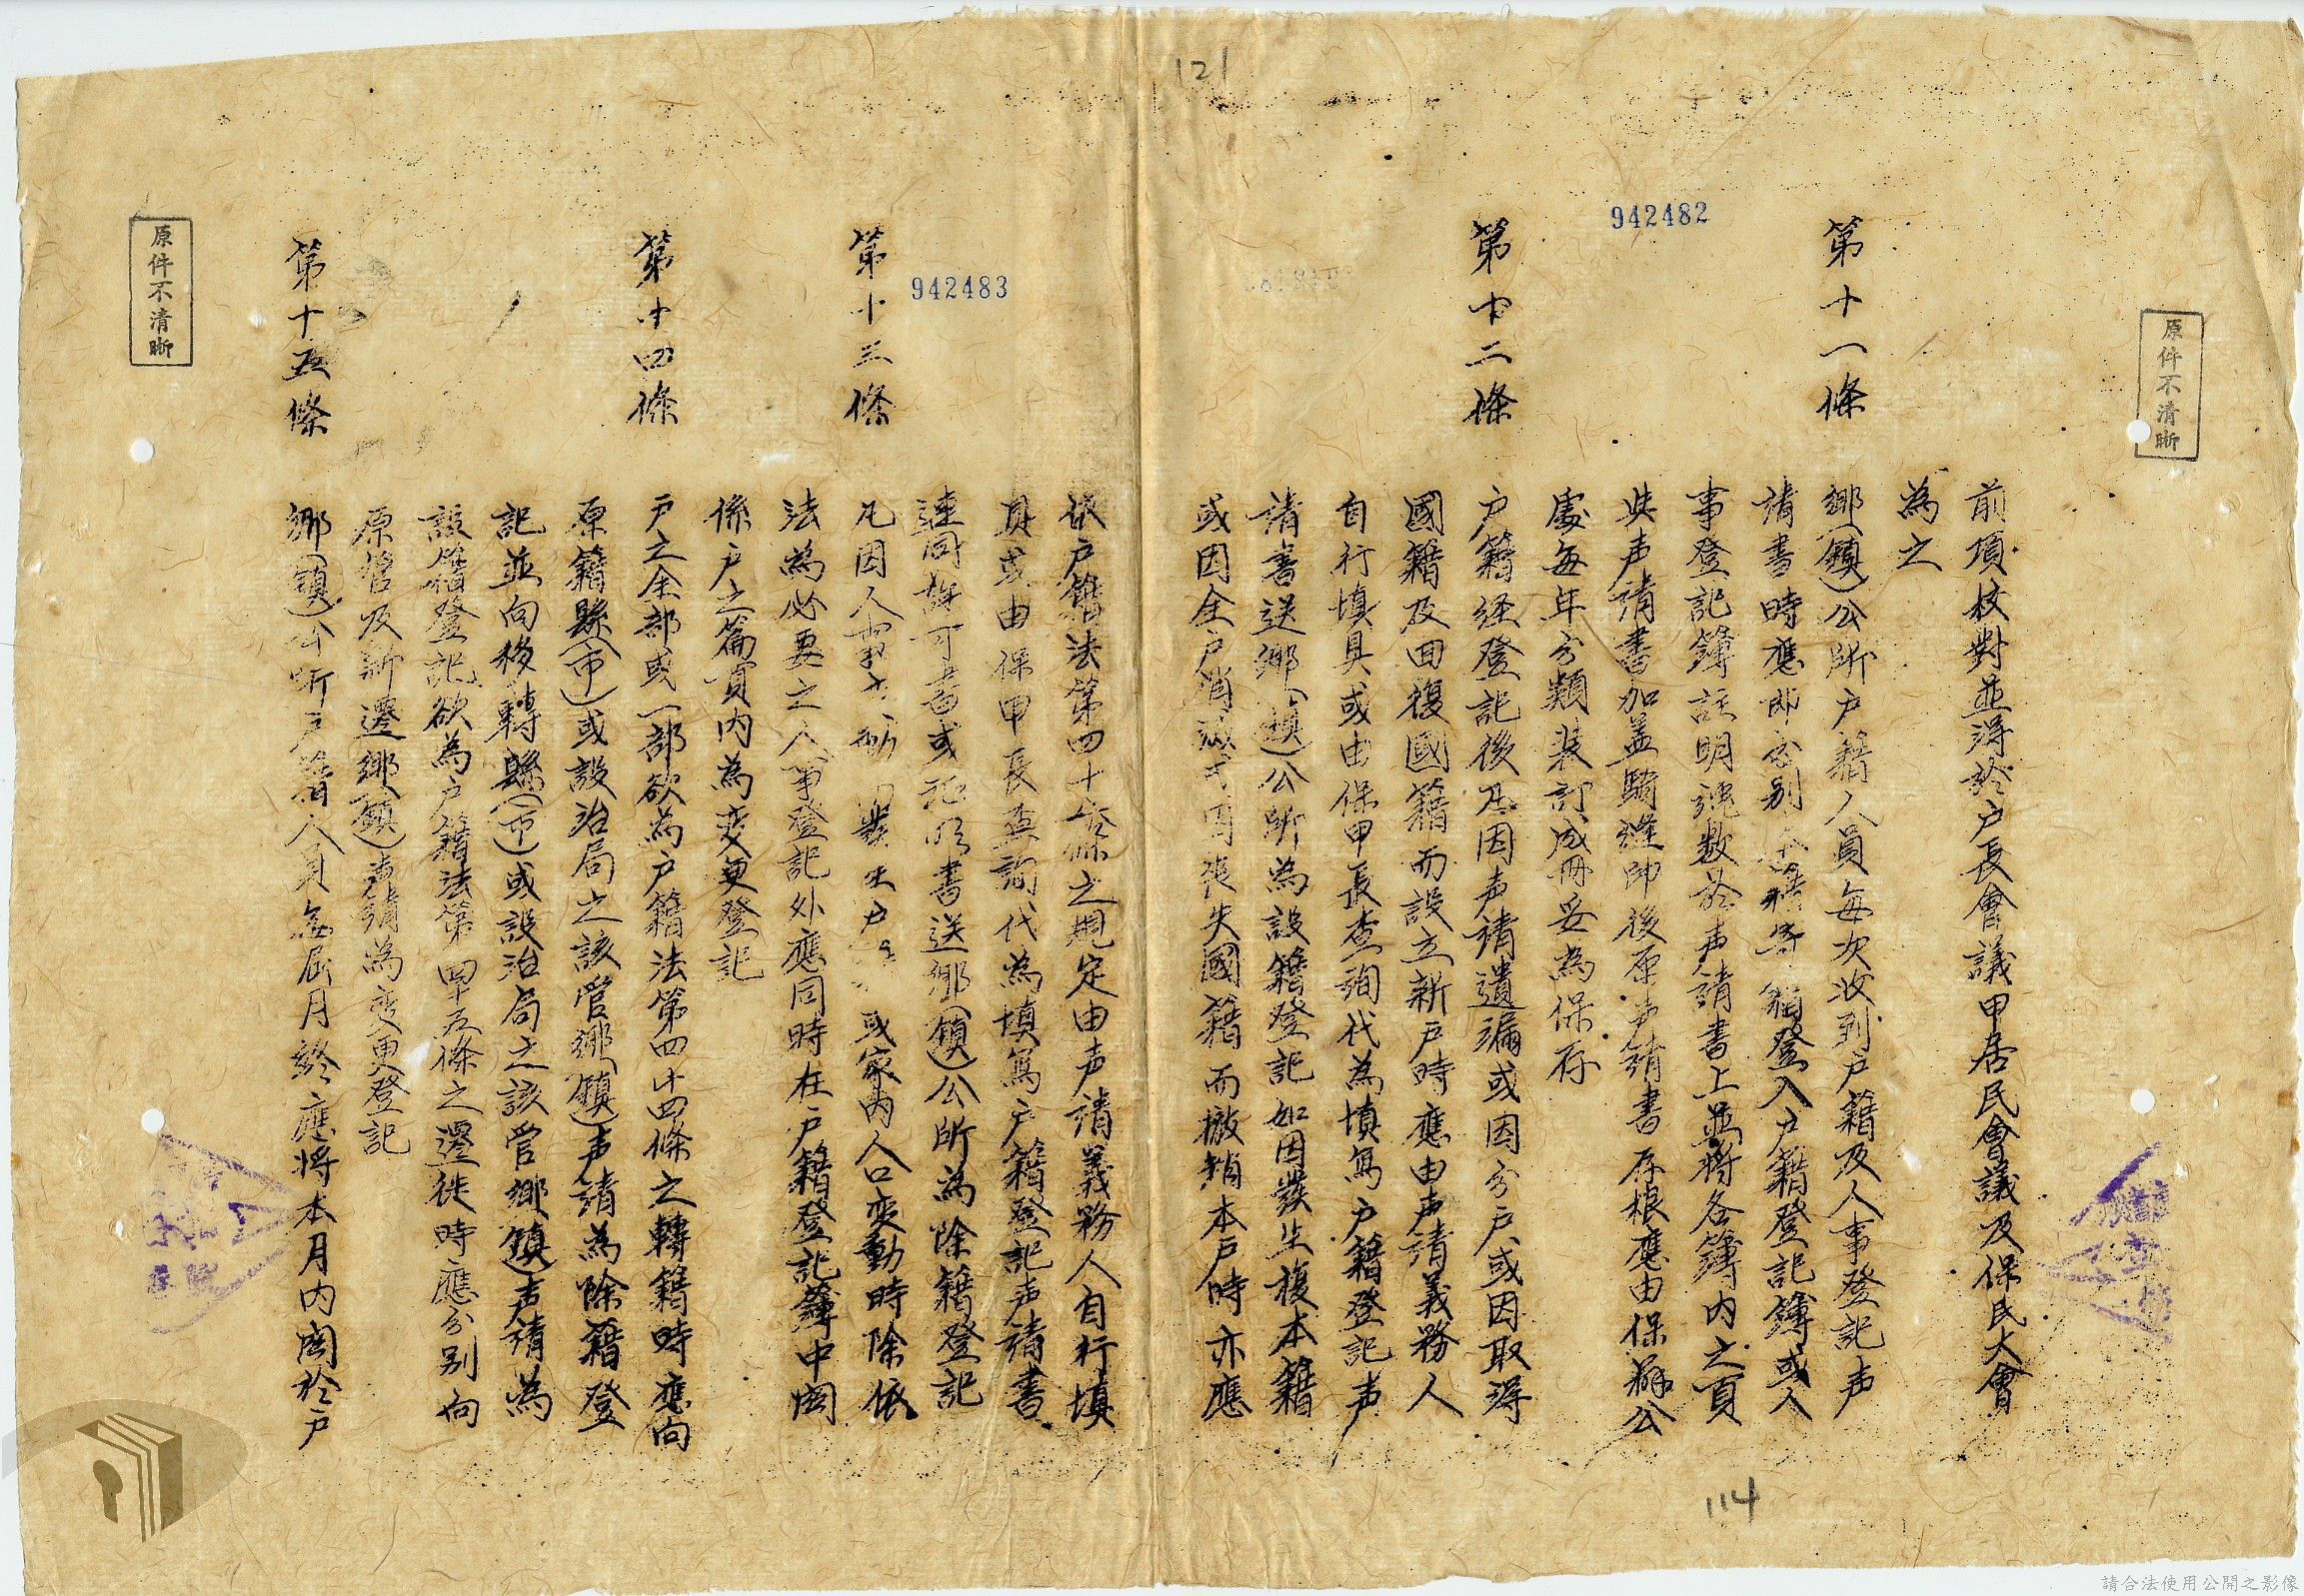 121
942482
原件不清晰
前項校對並得於户長會議甲居民會議及保民大會
為之
第十一條
鄉(鎮)公所户籍人員每次收到户籍及人事登記声
請書時應即分別登入户籍登記簿或人
事登記簿註明號数於声請書上並將各簿内之頁
声請書加盖騎縫印後原声請書存根應由保辦公
處每年分類装訂成冊妥為保存
第十二條
户籍経登記後凡因声請遺漏或因分户或因取得
國籍及回復國籍而設立新户時應由声請義務人
自行填具或由保甲長查詢代為填寫户籍登記声
請書送鄉(鎮)公所為設籍登記如因發生復本籍
或因全户消滅或因丧失國籍而撤銷本户時亦應
依户籍法第四十條之規定由声請義務人自行填
具或由保甲長查詢代為填寫户籍登記声請書
連同許可書或証明書送鄉(鎮)公所為除籍登記
942483
第十三條
凡因人事發生户或家内人口変動時除依
法為必要之人事登記外應同時在户籍登記簿中関
係户之篇頁内為変更登記
第十四條
户之全部或一部欲為户籍法第四十四條之轉籍時應向
原籍縣(市)或設治局之該管鄉(鎮)声請為除籍登
記並向移轉縣(市)或設治局之該管鄉(鎮)声請為
設籍登記欲為户籍法第四十五條之遷徙時應分別向
原管及新遷鄉(鎮)声請為变更登記
第十五條
鄉(鎮)公所户籍人員每屆月終應將本月内関於户
原件不清晰
114
請合法使用公開之影像